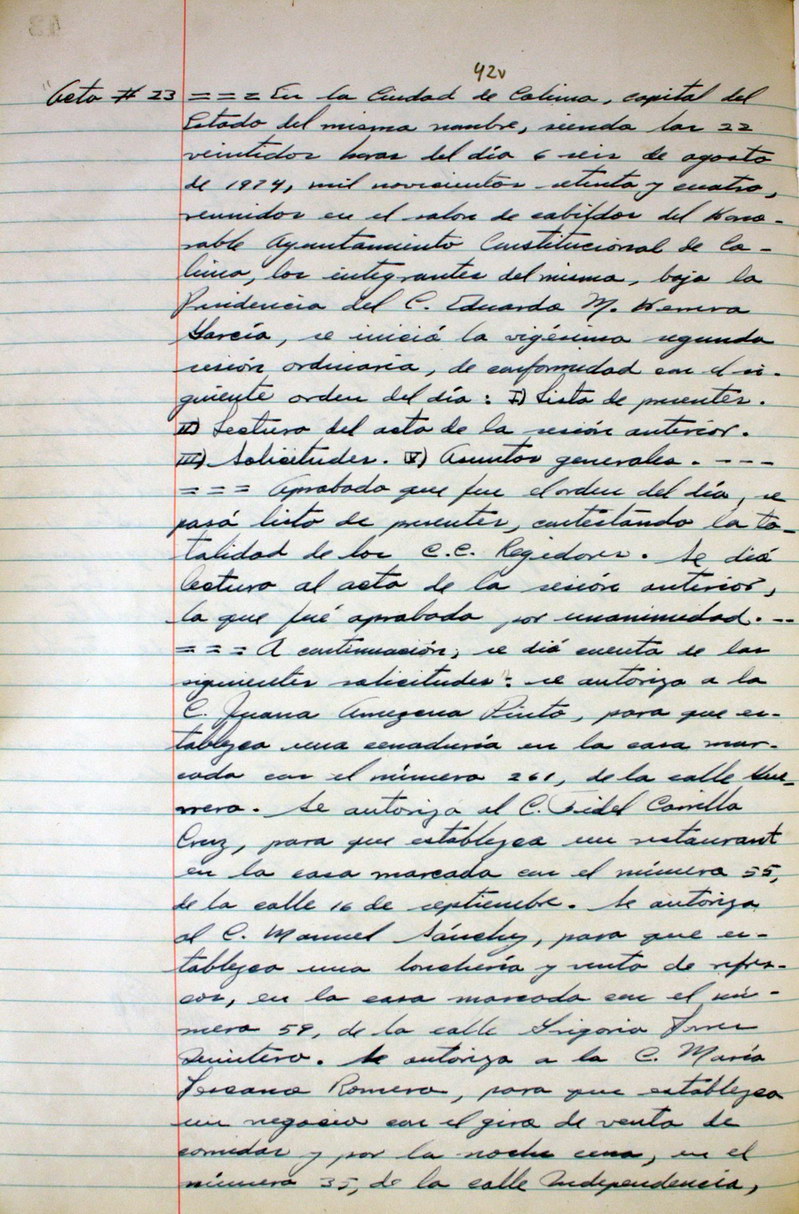 42v
Acta # 23 = = = En la Ciudad de Colima, capital del
Estado del mismo nombre, siendo las 22
veintidos horas del día 6 seis de agosto
de 1974, mil novecientos setenta y cuatro,
reunidos en el salon de cabildos del Hono-
rable Ayuntamiento Constitucional de Co-
lima, los integrantes del mismo, bajo la
Presidencia del C. Eduardo M. Herrera
García, se inició la vigésima segunda
sesión ordinaria, de conformidad con el si-
guiente orden del día: I) Lista de presentes.
II) Lectura del acta de la sesión anterior.
III) Solicitudes. V) Asuntos generales. - - -
= = = Aprobado que fue el orden del día, se
pasó lista de presentes, contestando la to-
talidad de los C.C. Regidores. Se dió
lectura al acta de la sesión anterior,
la que fué aprobada por unanimidad. --
= = = A continuación, se dió cuenta de las
siguientes solicitudes: se autoriza a la
C. Juana Amezcua Pinto, para que es-
tablezca una cenaduría en la casa mar-
cada con el número 261, de la calle Gue-
rrero. Se autoriza al C. Fidel Carrillo
Cruz, para que establezca un restaurant
en la casa marcada con el número 55,
de la calle 16 de septiembre. Se autoriza
al C. Manuel Sánchez, para que es-
tablezca una lonchería y venta de refres-
cos, en la casa marcada con el nú-
mero 59, de la calle Grigorio Torres
Quintero. Se autoriza a la C. María
Lescano Romero, para que establezca
un negocio con el giro de venta de
comidas y por la noche cena, en el
número 35, de la calle Independencia,